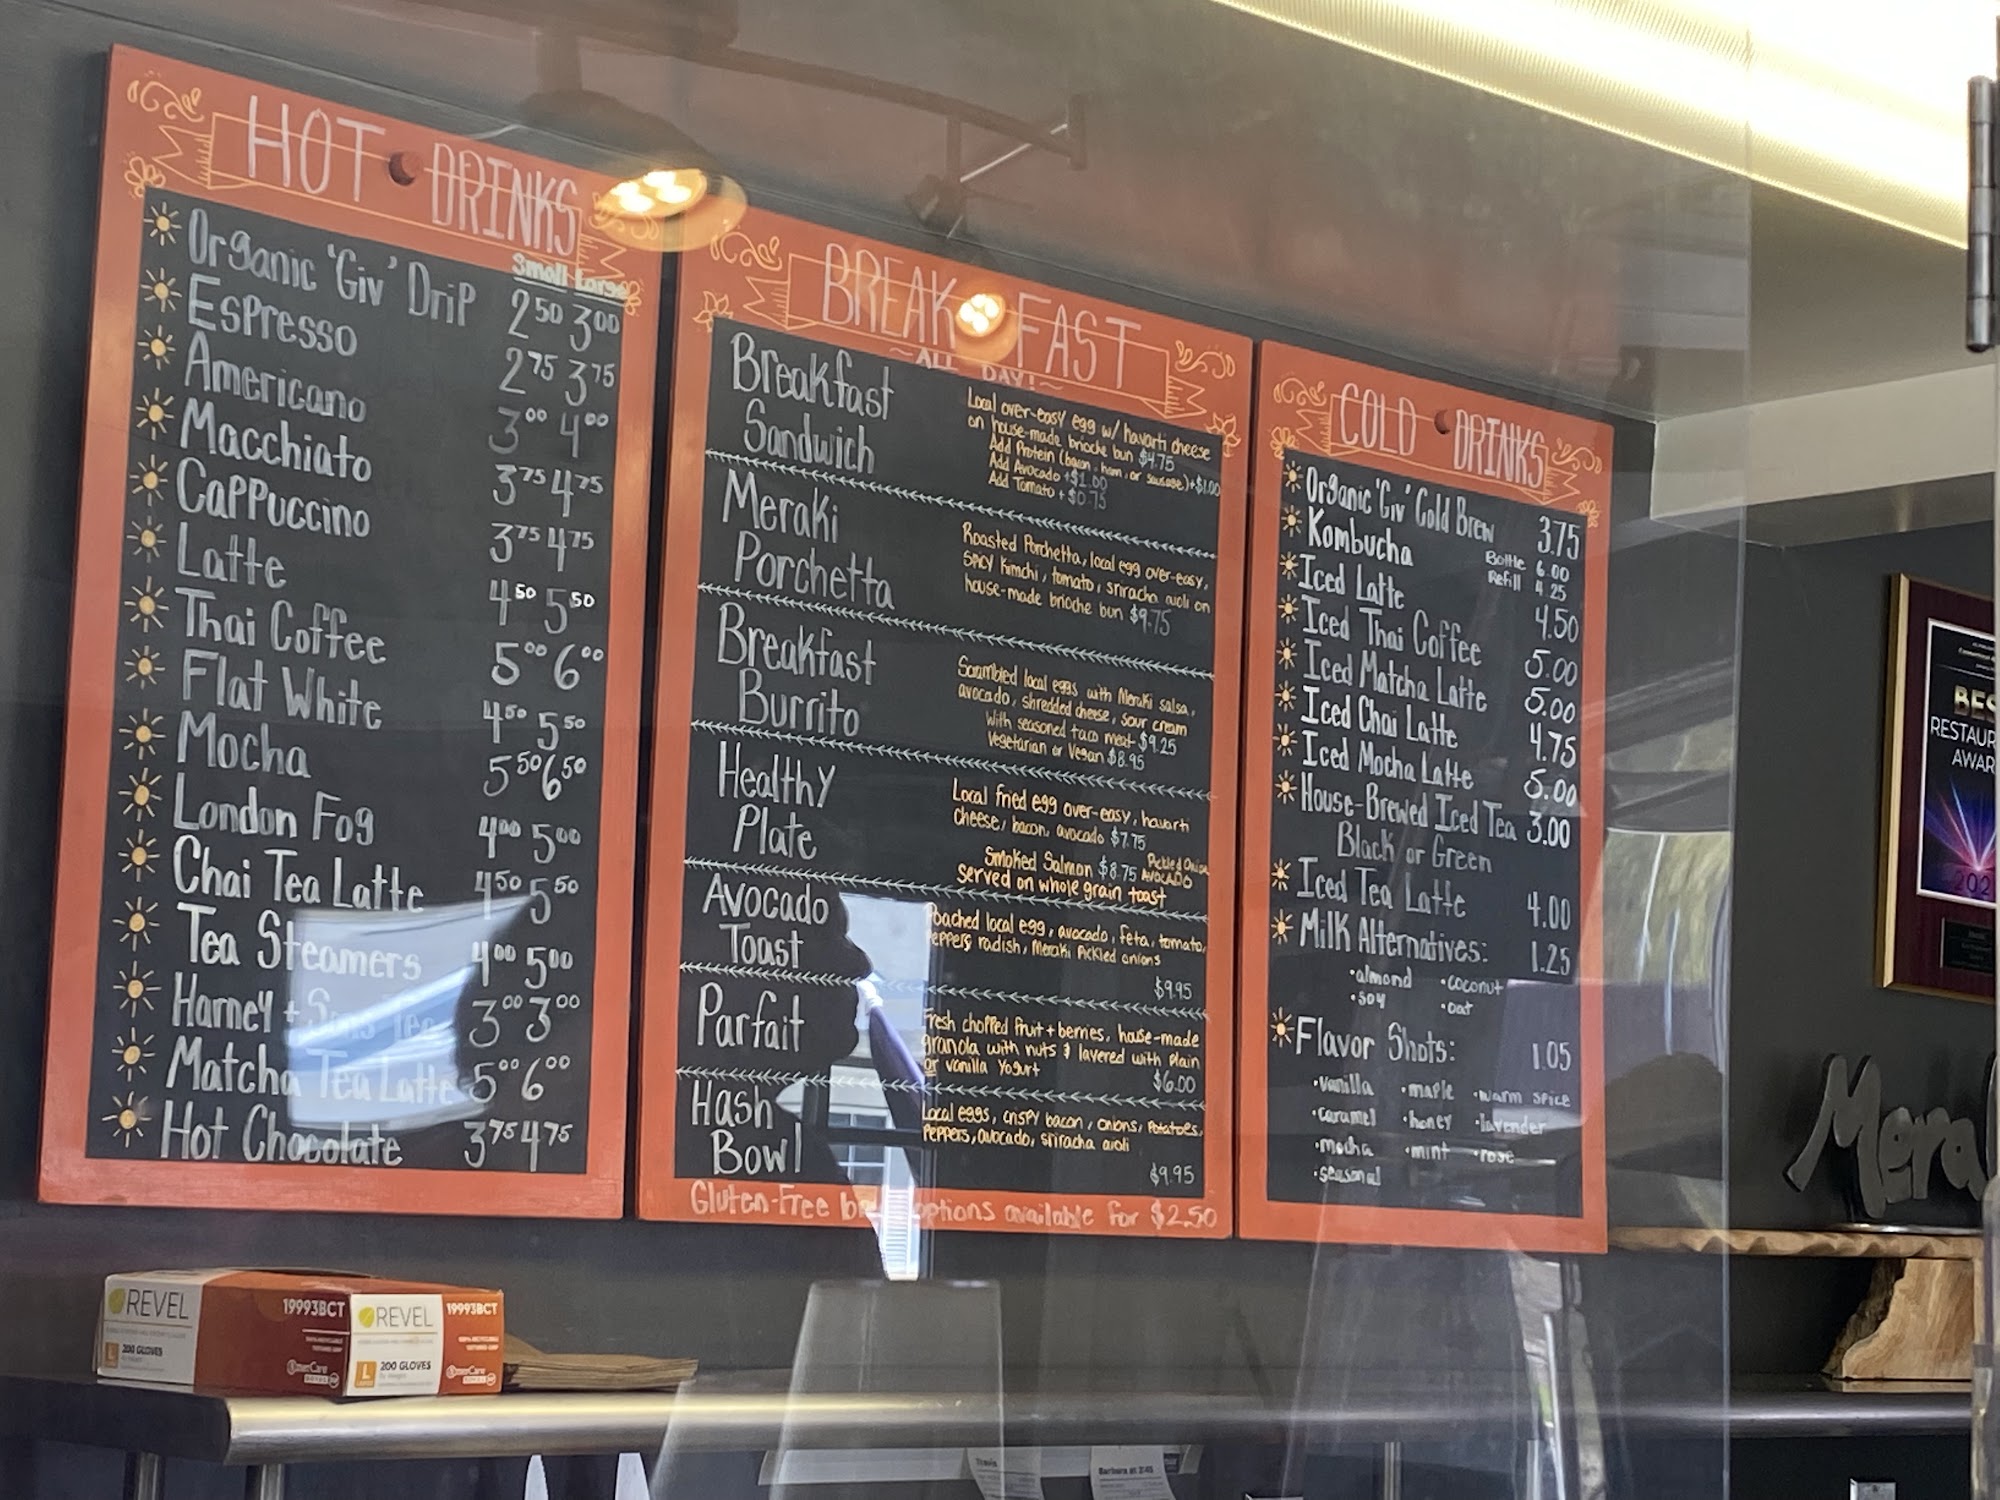 HOT DRINKS
Small Large
Organic 'Giv' Drip 2.50 3.00
Espresso 2.75 3.75
Americano 3.00 4.00
Macchiato 3.75 4.75
Cappuccino 3.75 4.75
Latte 4.50 5.50
Thai Coffee 5.00 6.00
Flat White 4.50 5.50
Mocha 5.50 6.50
London Fog 4.00 5.00
Chai Tea Latte 4.50 5.50
Tea Steamers 4.00 5.00
Harney + Sons Tea 3.00 3.00
Matcha Tea Latte 5.00 6.00
Hot Chocolate 3.75 4.75
BREAKFAST
~ALL DAY!~
Breakfast
Sandwich
Local over-easy egg w/ havarti cheese
on house-made brioche bun $4.75
Add Protein (bacon, ham, or sausage)+$1.00
Add Avocado +$1.00
Add Tomato + $0.75
Meraki
Porchetta
Roasted Porchetta, local egg over-easy,
spicy kimchi, tomato, sriracha aioli on
house-made brioche bun $9.75
Breakfast
Burrito
Scrambled local eggs with Meraki salsa,
avocado, shredded cheese, sour cream
with seasoned taco meat $9.25
Vegetarian or Vegan $8.95
Healthy
Plate
Local fried egg over-easy, havarti
cheese, bacon, avocado $7.75
Smoked Salmon $8.75 Pickled Onion
AVOCADO
served on whole grain toast
Avocado
Toast
Poached local egg, avocado, feta, tomato,
peppers, radish, Meraki Pickled onions
$9.95
Parfait
Fresh chopped fruit + berries, house-made
granola with nuts & layered with plain
or vanilla yogurt
$6.00
Hash
Bowl
Local eggs, crispy bacon, onions, potatoes,
peppers, avocado, sriracha aioli
$9.95
Gluten-Free options available for $2.50
COLD DRINKS
Organic 'Giv' Cold Brew 3.75
Kombucha Bottle 6.00
Refill 4.25
Iced Latte 4.50
Iced Thai Coffee 5.00
Iced Matcha Latte 5.00
Iced Chai Latte 4.75
Iced Mocha Latte 5.00
House-Brewed Iced Tea 3.00
Black or Green
Iced Tea Latte 4.00
Milk Alternatives: 1.25
•almond •coconut
•soy •oat
Flavor Shots: 1.05
•vanilla •maple •warm spice
•caramel •honey •lavender
•mocha •mint •rose
•seasonal
BES
RESTAUR
AWAR
202
Mera
REVEL
19993BCT
200 GLOVES
REVEL
19993BCT
L
200 GLOVES
Travis
Barbara at 3:45